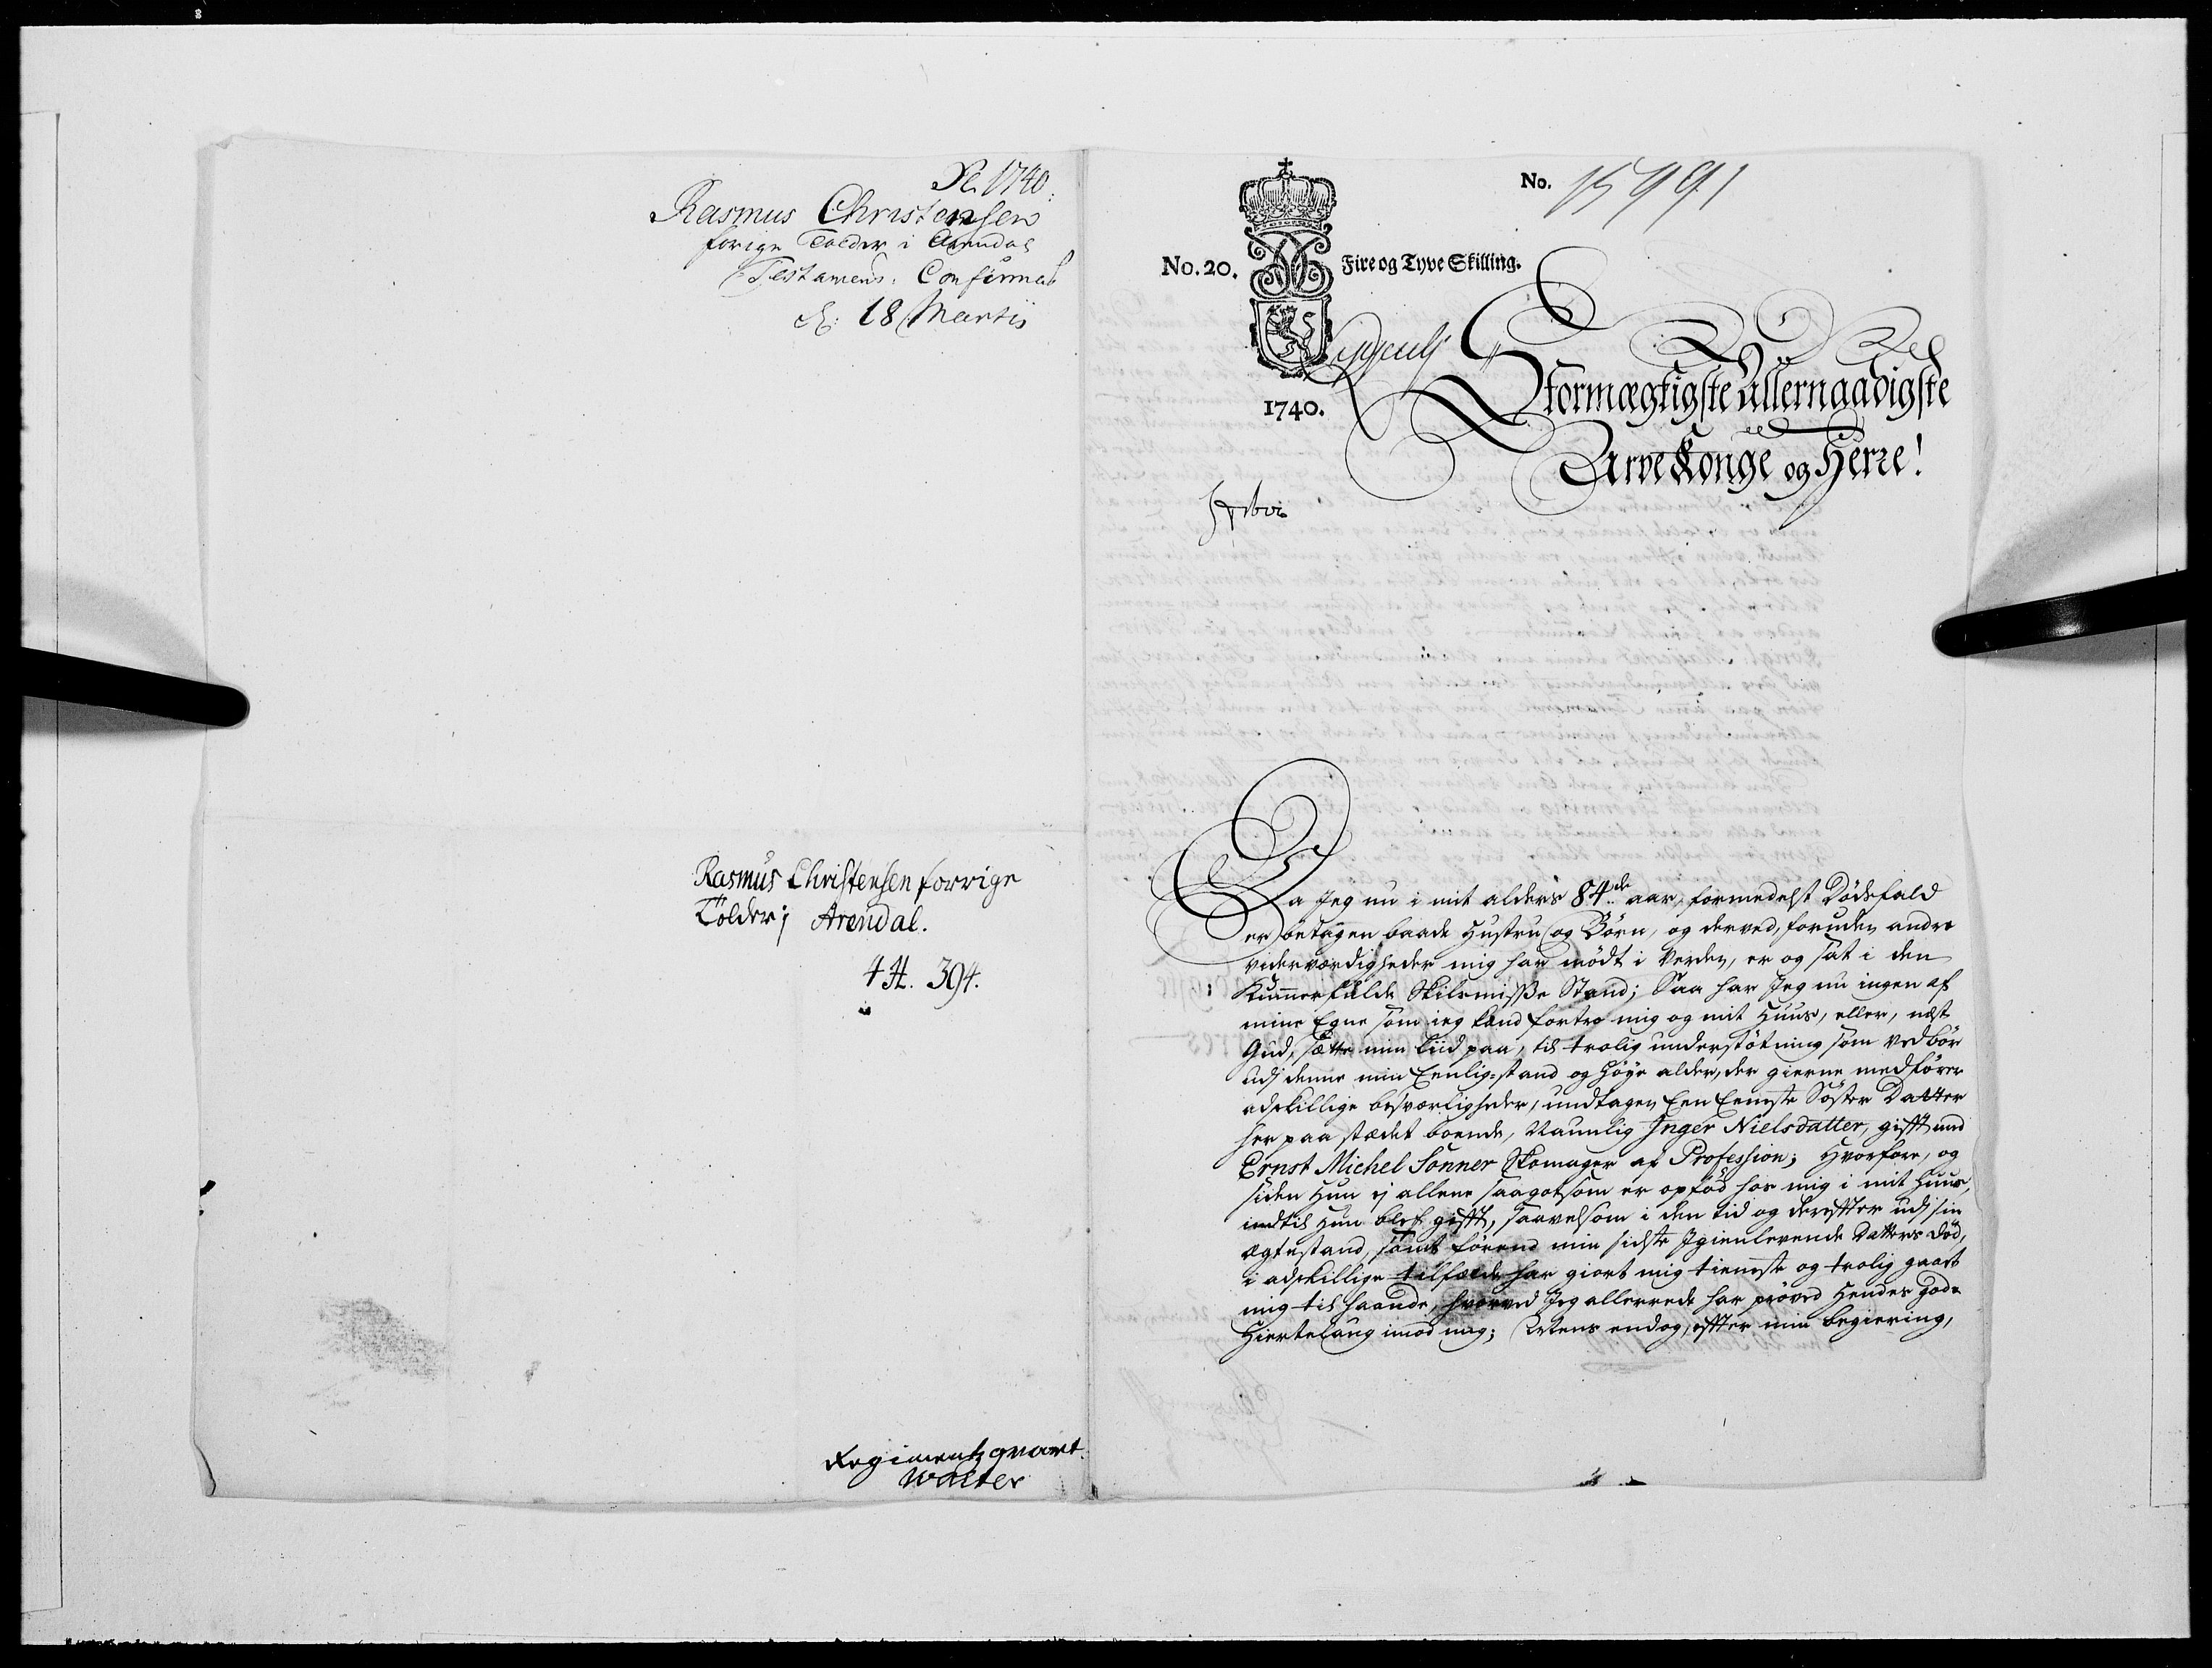 1740
Rasmus Christensen
forige Tolder i Arendal
Testament: Confirmat
d: 18 Martij
Rasmus Christensen forrige
Tolder i Arendal.
394.
Regimentzqvart.
Walter
No. 15991
No. 20. Fire og Tyve Skilling.
1740.
Stormægtigste Allernaadigste
Arve Konge og Herre!
Da Jeg nu i mit alders 84de aar, formedelst Dödsfald
er betagen baade Hustru og Börn, og derved, foruden andre
viderværdigheder mig har mödt i Verden, er og sat i den
Kummerfulde Skilsmisse Stand; Saa har Jeg nu ingen af
mine Egne som ieg kand fortro mig og mit Huus, eller, nest
Gud, sætte min Liid paa, til trolig understötning som vedbör
udj denne min Eenlig-stand og höye alder, der gierne medförer
adskillige besværligheder, undtagen Een Eeneste Söster Datter
her paa stædet boende, Naunlig Inger Nielsdatter, gifft med
Ernst Michel Sonner Skomager af Profession; Hvorfore, og
siden Hun ej allene saagotsom er opfød hos mig i mit Huus,
indtil Hun blef gifft, saavelsom i den tid og derefter udj sin
ægtestand, samt förend min sidste Igienlevende Datters Död,
i adskillige tilfælde har giort mig tieneste og trolig gaaet
mig til haande, hvorved Jeg allerrede har pröved Hendes gode
Hiertelaug imod mig; endog, effter min begiering,